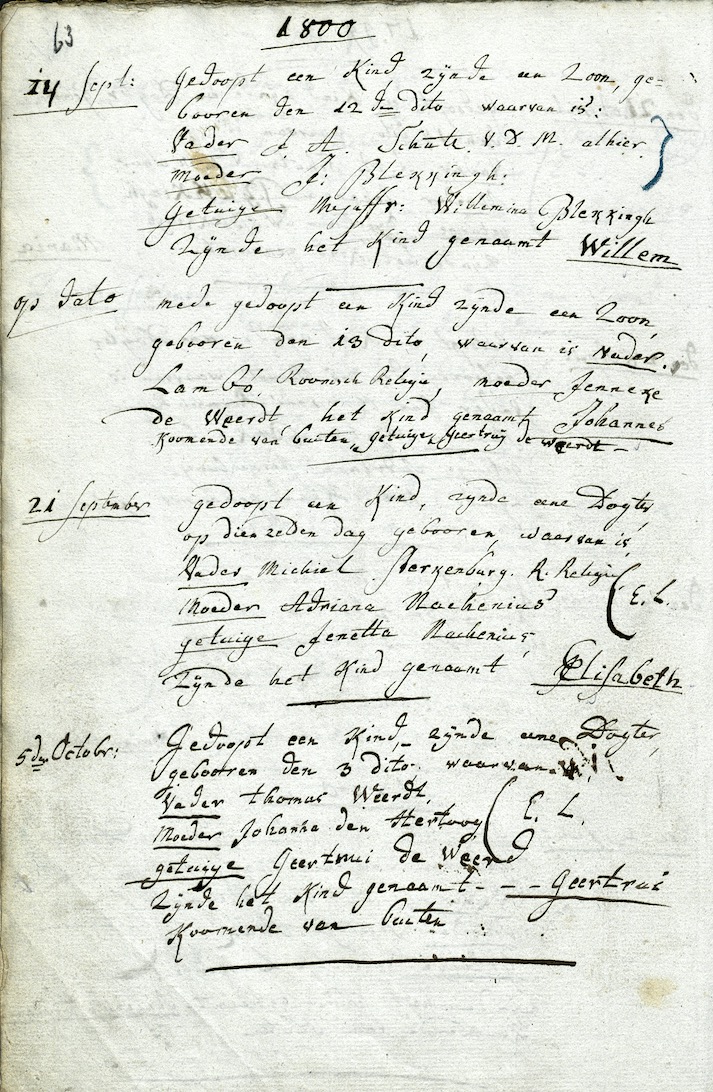 63
1800
14 Sept: Gedoopt een Kind zijnde een Zoon, ge-
booren den 12 den dito waarvan is:
Vader J A. Schute V. D. M. alhier
Moeder J: Blekkingh.
Getuige Mejuffr: Willemina Blekkingh
Zijnde het Kind genaamt Willem
op dato mede gedoopt een Kind zijnde een Zoon,
gebooren den 13 dito, waarvan is Vader,
Lambó, Roomsch Religie, moeder Jenneke
de Weerdt het Kind genaamt Johannes
Koomende van buiten, getuige, Geertruy de Weerdt
21 September gedoopt een Kind, zijnde eene Dogter
op dienzelden dag gebooren, waarvan is
Vader Michiel Sterkenburg. R. Religie
Moeder Adriana Nachenius E. L.
getuige Jenetta Nachenius,
Zijnde het Kind genaamt Elisabeth
5 den Octobr: Gedoopt een Kind, zijnde eene Dogter
gebooren den 3 dito, waarvan is
Vader Thomas Weerdt,
Moeder Johanna den Hertoog E. L.
getuige Geertrui de Weerd
Zijnde het Kind genaamt - - - Geertrui
Koomende van buiten